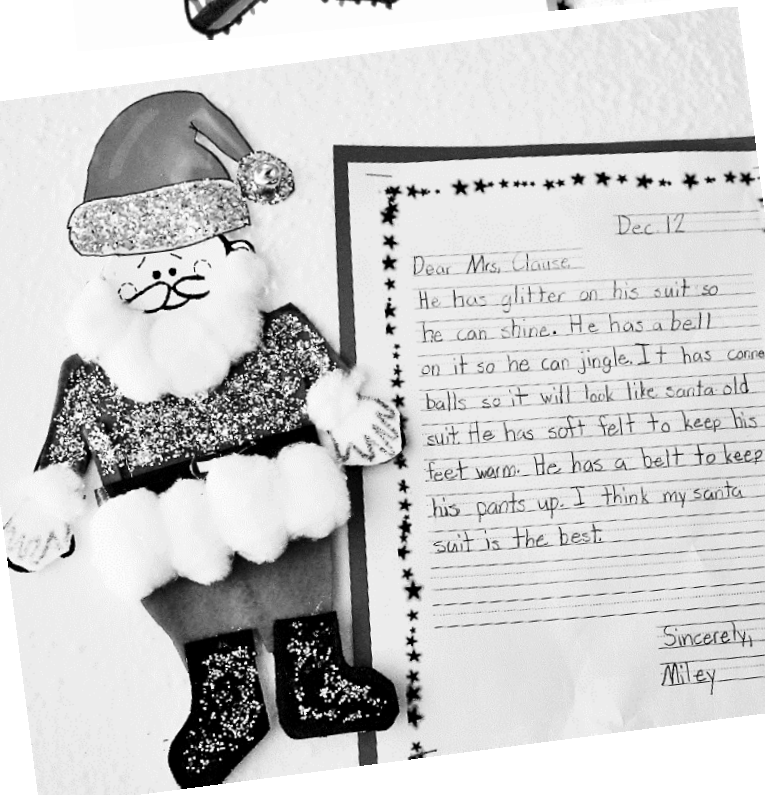 Dec. 12
Dear Mrs. Clause.
He has glitter on his suit so
he can shine. He has a bell
on it so he can jingle. It has
balls so it will look like santa old
suit. He has soft felt to keep his
feet warm. He has a belt to keep
his pants up. I think my santa
suit is the best.
Sincerely,
Miley